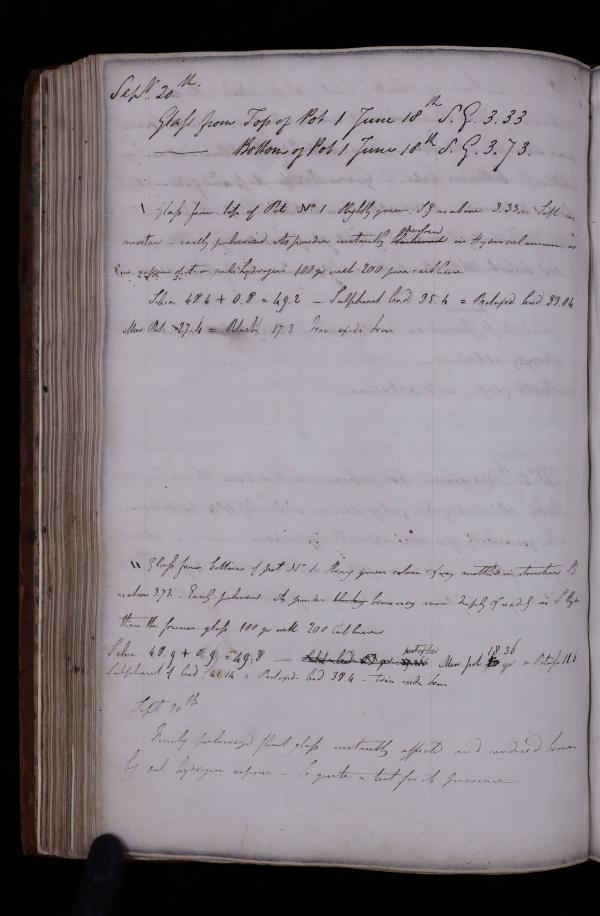 Septr 20th
Glass from Top of Pot 1 June 18th S.G. 3.33
—— Bottom of Pot 1 June 18th S.G. 3.73.
\ Glass from top of Pot No 1 slightly green. SG as above 3.33.
mortar - easily pulverised its powder instantly in Hydrosul
100 gr with 200 pure carb
Silica 48.4 + 0.8 = 49.2 - Sulphuret lead 35.4 = Protoxide lead 33.04
Mur Pot 27.4 = Potash 17.3 trace oxide iron
\\ Glass from bottom of pot No 1. green colour mottled in structure SG
as above 3.73 - Easily pulverised. As powder becoming more deeply in S Hyd
than the former glass 100 gr with 200 Carb
Silica 48.9 + 0.9 = 49.8 - Mur pot 18.36 gr = Potash 11.6
Sulphuret of lead 41.14 = Protoxide lead 38.4 - trace oxide iron
Sept 20th
Finely pulverized flint glass instantly affected and rendered brown
by sul hydrogen vapour - Is quite a test for its presence